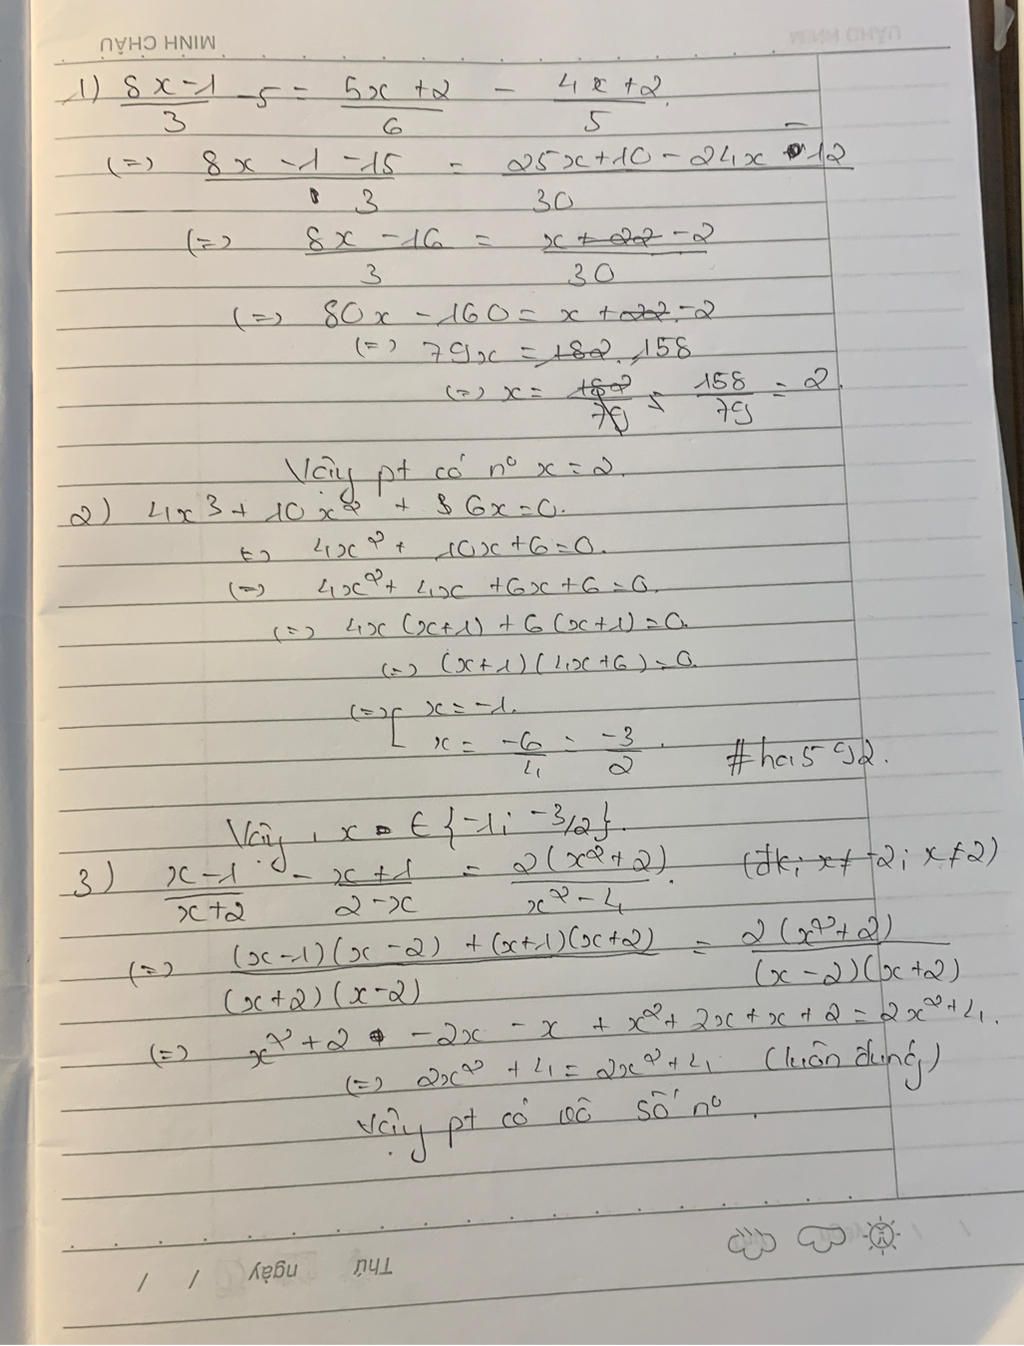 MINH CHÂU
1) (8x-1)/3 - 5 = (5x+2)/6 - (4x+2)/5
(=) (8x-1-15)/3 = (25x+10-24x-12)/30
(=) (8x-16)/3 = (x+22-2)/30
(=) 80x-160 = x+22-2
(=) 79x = 182. 158
(=) x = 182/79 = 158/79 = 2.
Vậy pt có nº x=2.
2) 4x³ + 10x² + 6x=0.
(=) 4x² + 10x+6=0.
(=) 4x²+4x+6x+6=0.
(=) 4x(x+1)+6(x+1)=0.
(=) (x+1)(4x+6)=0.
(=) [ x=-1.
x = -6/4 = -3/2. #hai592.
Vậy, x ∈ {-1; -3/2}.
3) (x-1)/(x+2) - (x+1)/(2-x) = 2(x²+2)/(x²-4). (đk: x≠-2; x≠2)
(=) ((x-1)(x-2)+(x+1)(x+2))/((x+2)(x-2)) = 2(x²+2)/((x-2)(x+2))
(=) x²+2-2x-x+x²+2x+x+2=2x²+4.
(=) 2x²+4=2x²+4 (luôn đúng)
Vậy pt có vô số nº.
Thứ ngày / /